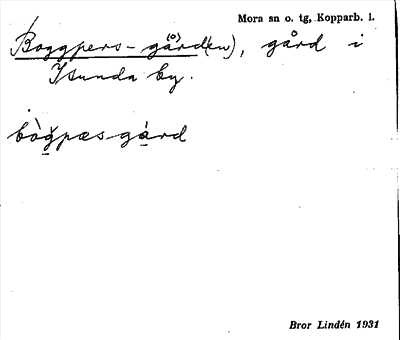 Mora sn o. tg, Kopparb. l.
Boggpers-gård(en), gård i
(o)
Isunda by.
bòǧpæs-gárd
Bror Lindén 1931